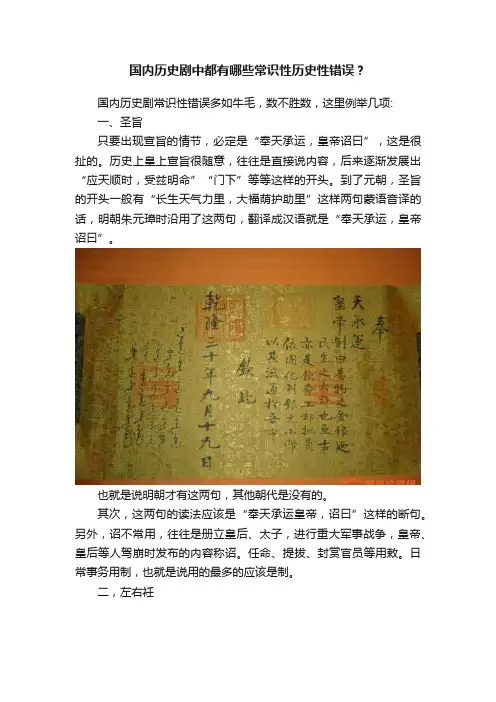 国内历史剧中都有哪些常识性历史性错误？
国内历史剧常识性错误多如牛毛，数不胜数，这里例举几项:
一、圣旨
只要出现宣旨的情节，必定是“奉天承运，皇帝诏曰”，这是很
扯的。历史上皇上宣旨很随意，往往是直接说内容，后来逐渐发展出
“应天顺时，受兹明命”“门下”等等这样的开头。到了元朝，圣旨
的开头一般有“长生天气力里，大福荫护助里”这样两句蒙语音译的
话，明朝朱元璋时沿用了这两句，翻译成汉语就是“奉天承运，皇帝
诏曰”。
奉
天永運
皇帝制曰
民生之大計也亘古
亦是欽命工部
欽此
乾隆二十年九月十九日
也就是说明朝才有这两句，其他朝代是没有的。
其次，这两句的读法应该是“奉天承运皇帝，诏曰”这样的断句。
另外，诏不常用，往往是册立皇后、太子，进行重大军事战争，皇帝、
皇后等人驾崩时发布的内容称诏。任命、提拔、封赏官员等用敕。日
常事务用制，也就是说用的最多的应该是制。
二，左右衽